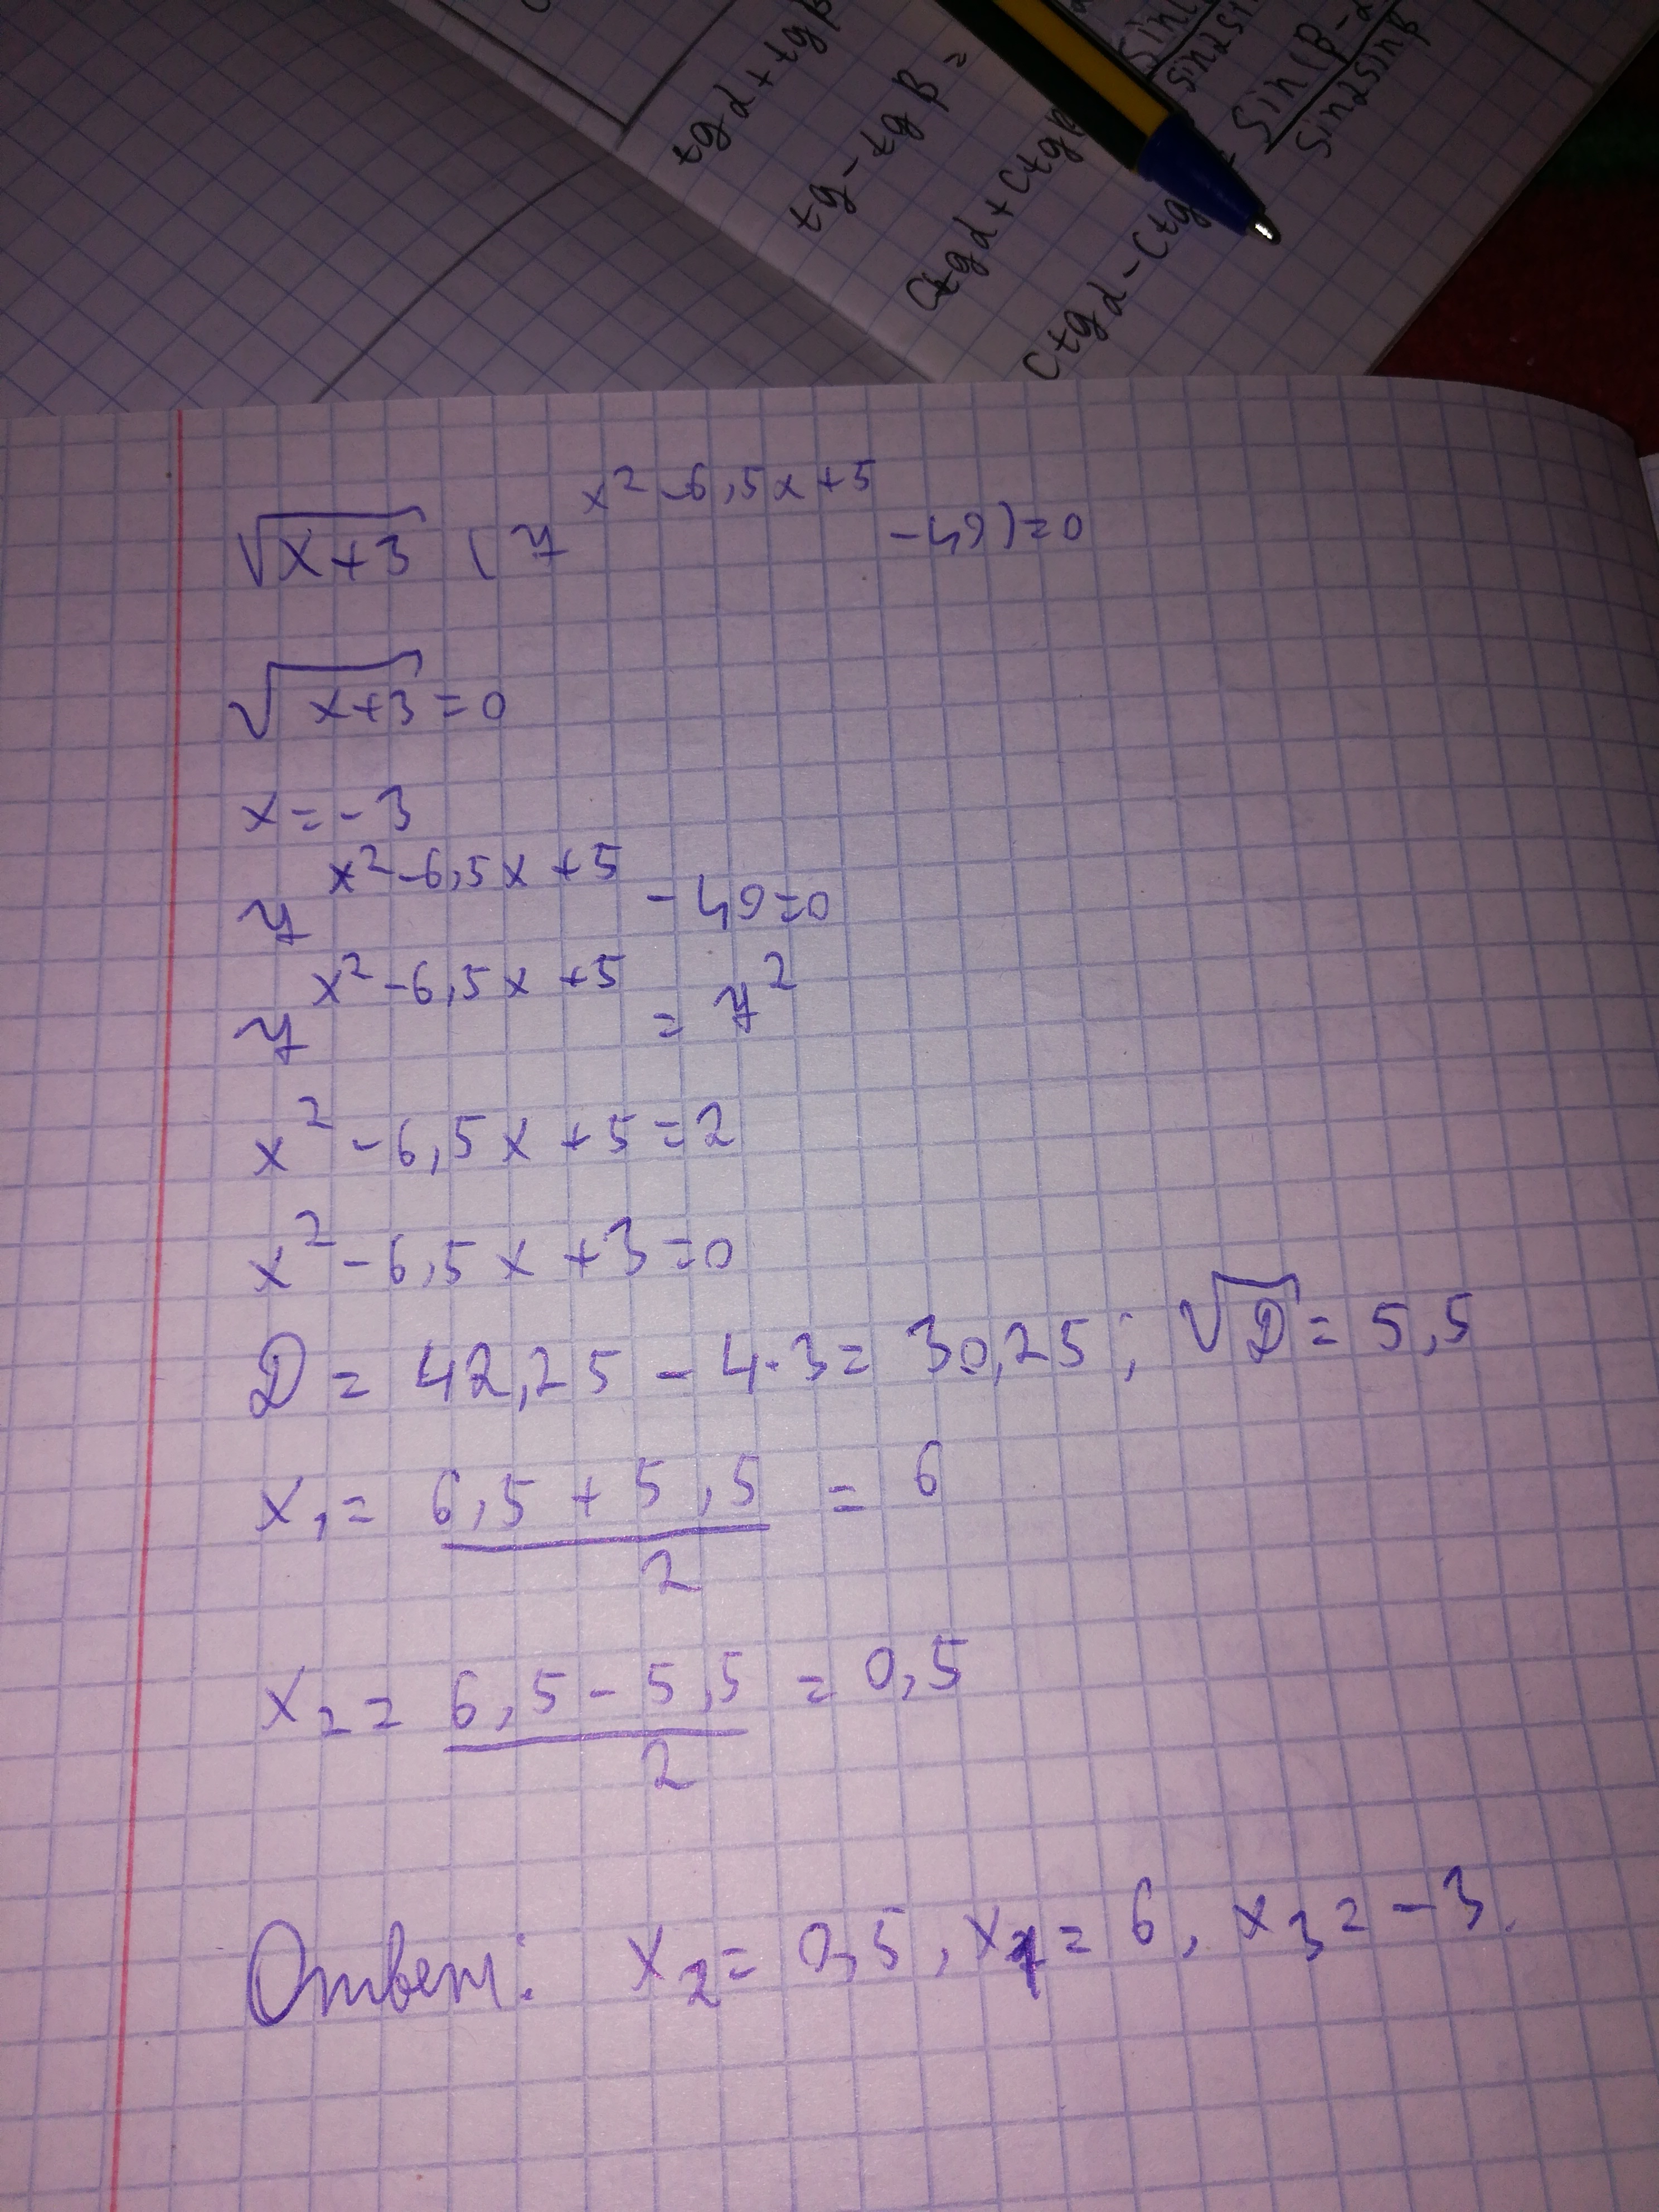 tgα + tgβ
tg - tgβ =
ctgα + ctgβ
ctgα - ctg
sin(β -
sin2sinβ
√x+3 (7^x²-6,5x+5 -49)=0
√x+3 = 0
x = -3
7^x²-6,5x+5 - 49=0
7^x²-6,5x+5 = 7²
x² - 6,5x + 5 = 2
x² - 6,5x + 3 = 0
D = 42,25 - 4·3 = 30,25 ; √D = 5,5
x₁ = 6,5 + 5,5 / 2 = 6
x₂ = 6,5 - 5,5 / 2 = 0,5
Ответ: x₂ = 0,5, x₁ = 6, x₃ = -3.